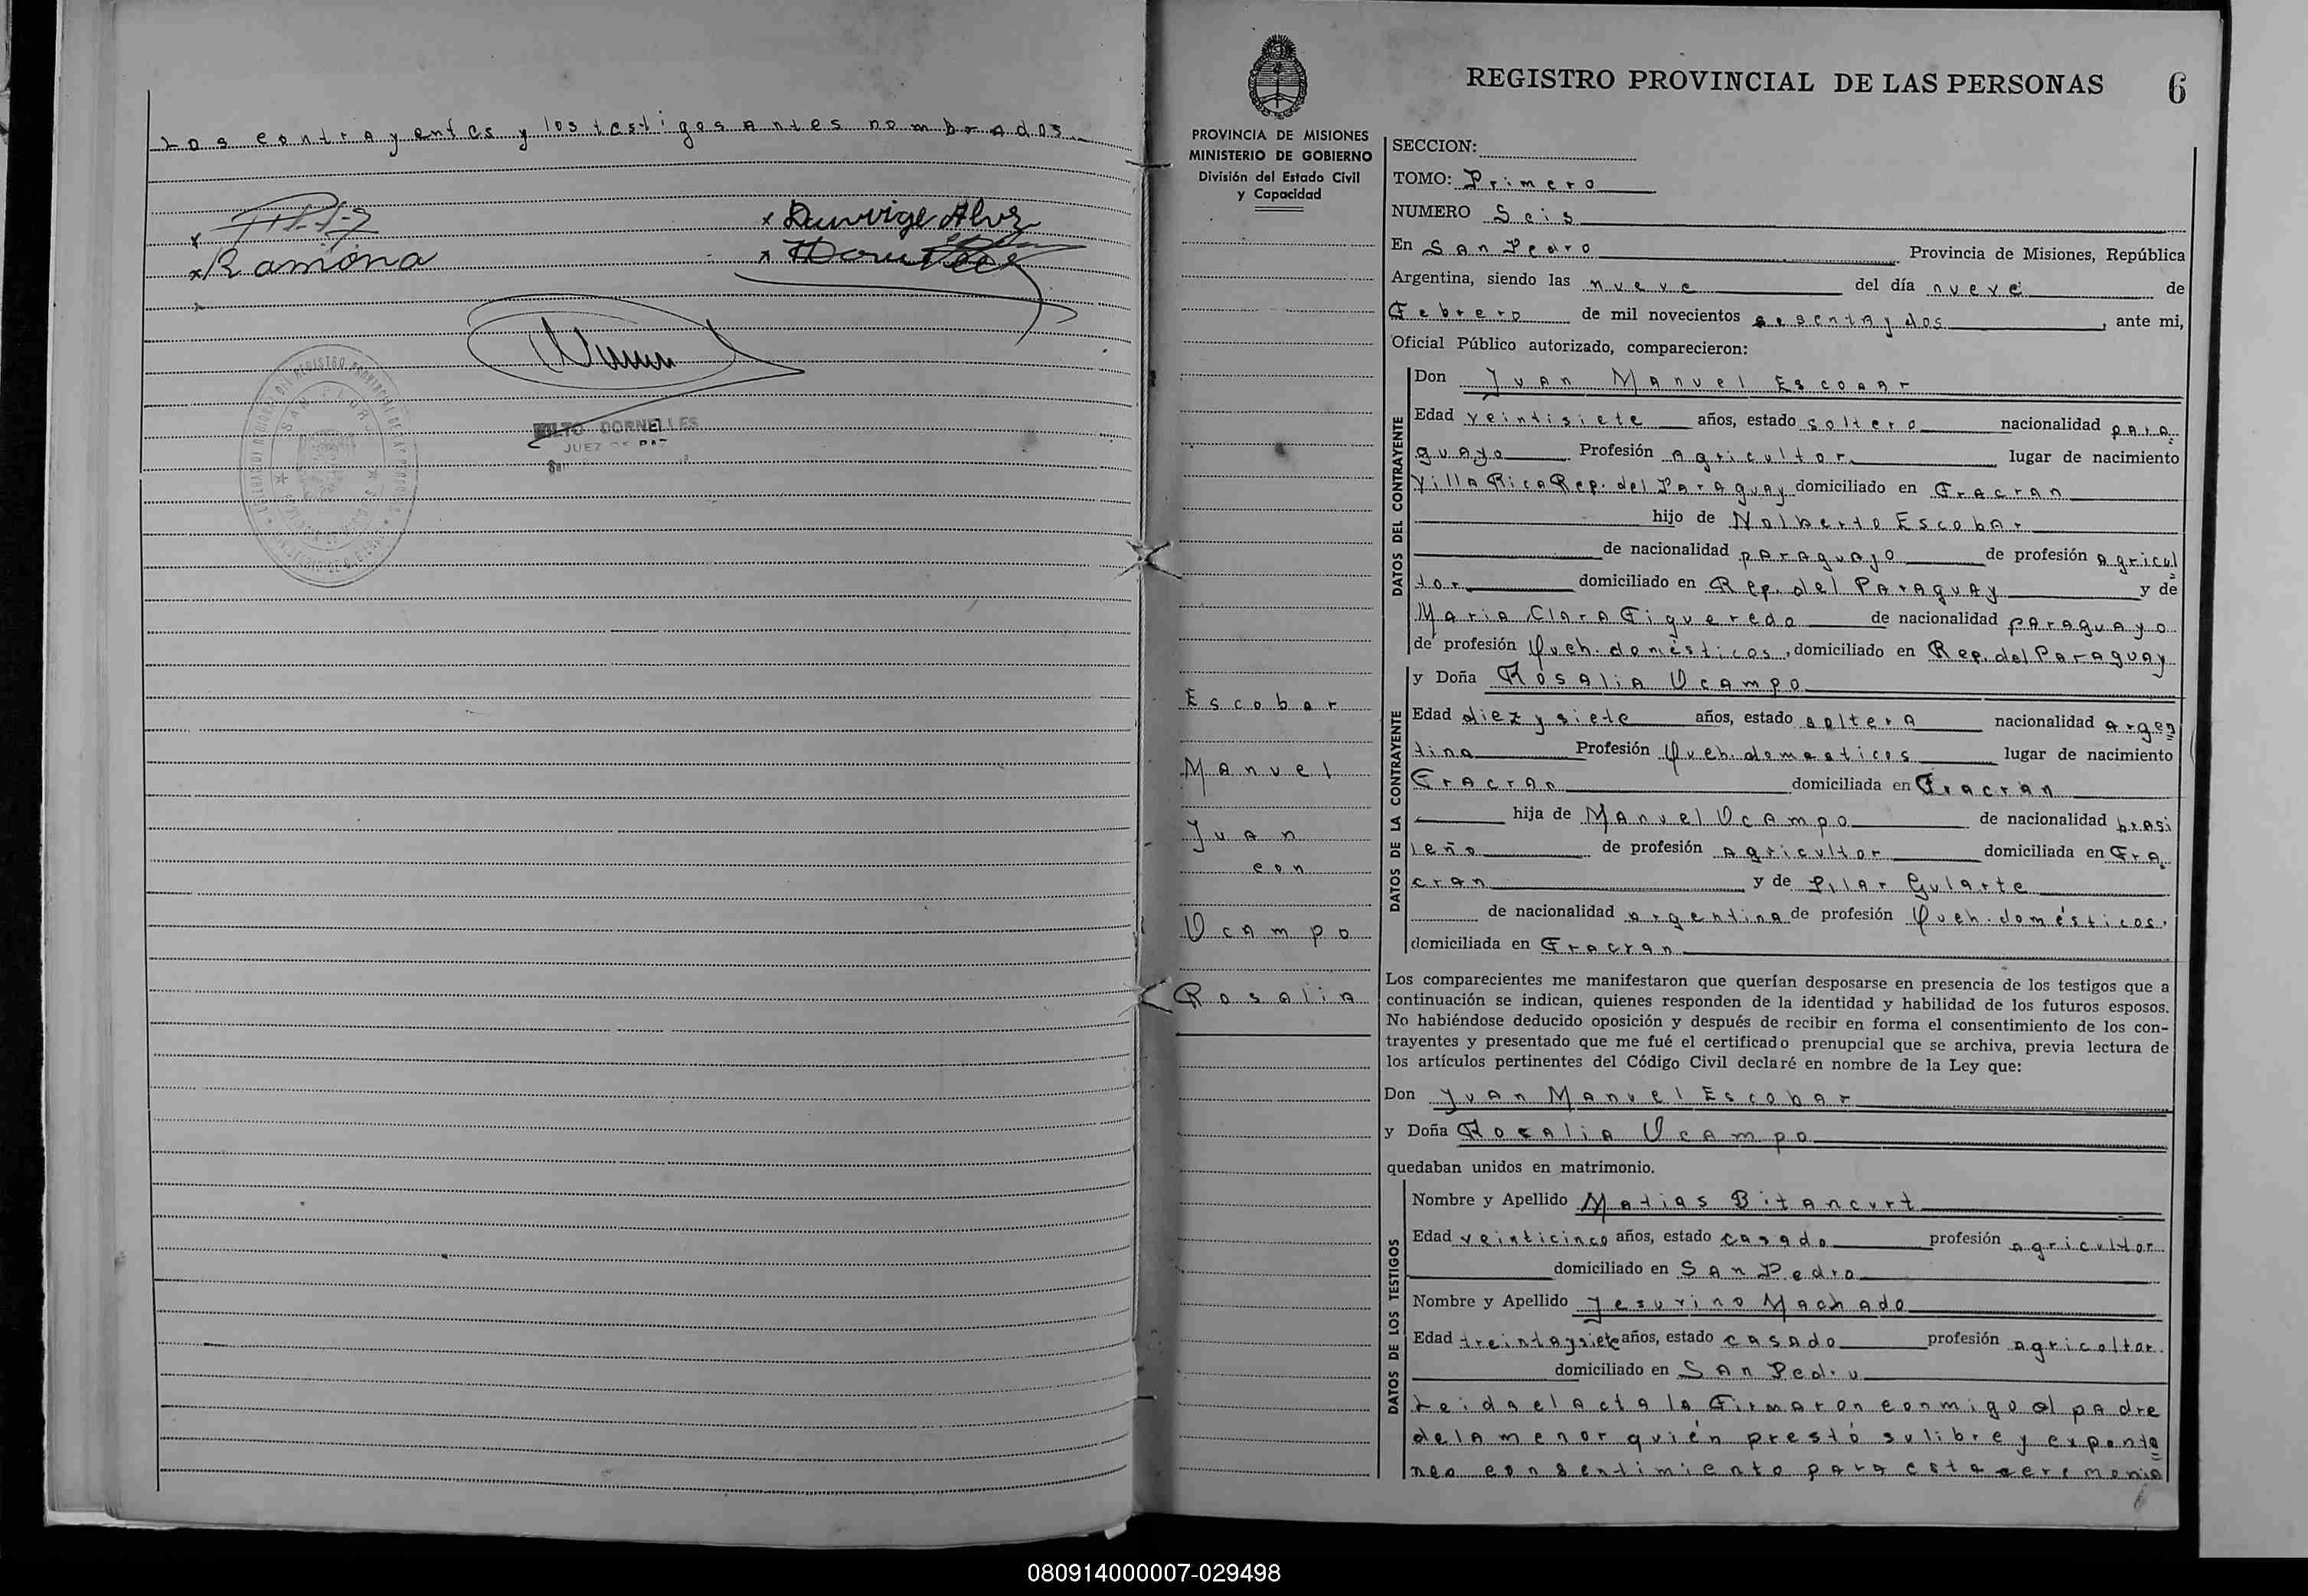 Los contrayentes y los testigos antes nombrados.
x
x Ramona
x Duwvige Alvez
x
DORNELLES
JUEZ DE PAZ
REGISTRO PROVINCIAL DE LAS PERSONAS 6
PROVINCIA DE MISIONES
MINISTERIO DE GOBIERNO
División del Estado Civil
y Capacidad
Escobar
Manuel
Juan
con
Ocampo
Rosalia
SECCION:
TOMO: Primero
NUMERO Seis
En San Pedro Provincia de Misiones, República
Argentina, siendo las nueve del día nueve de
Febrero de mil novecientos sesenta y dos, ante mi,
Oficial Público autorizado, comparecieron:
DATOS DEL CONTRAYENTE
Don Juan Manuel Escobar
Edad veintisiete años, estado soltero nacionalidad para
guayo Profesión Agricultor lugar de nacimiento
Villa Rica Rep. del Paraguay domiciliado en Fracran
hijo de Nolberto Escobar
de nacionalidad paraguayo de profesión agricul
tor domiciliado en Rep. del Paraguay y de
Maria Clara Figueredo de nacionalidad paraguayo
de profesión Queh. domésticos, domiciliado en Rep. del Paraguay
DATOS DE LA CONTRAYENTE
y Doña Rosalia Ocampo
Edad diez y siete años, estado soltera nacionalidad argen
tina Profesión Queh. domesticos lugar de nacimiento
Fracran domiciliada en Fracran
hija de Manuel Ocampo de nacionalidad brasi
leño de profesión agricultor domiciliada en Fra
cran y de Pilar Gularte
de nacionalidad argentina de profesión Queh. domésticos,
domiciliada en Fracran
Los comparecientes me manifestaron que querían desposarse en presencia de los testigos que a
continuación se indican, quienes responden de la identidad y habilidad de los futuros esposos.
No habiéndose deducido oposición y después de recibir en forma el consentimiento de los con-
trayentes y presentado que me fué el certificado prenupcial que se archiva, previa lectura de
los artículos pertinentes del Código Civil declaré en nombre de la Ley que:
Don Juan Manuel Escobar
y Doña Rosalia Ocampo
quedaban unidos en matrimonio.
DATOS DE LOS TESTIGOS
Nombre y Apellido Matias Bitancurt
Edad veinticinco años, estado casado profesión agricultor
domiciliado en San Pedro
Nombre y Apellido Jesuvino Machado
Edad treinta y siete años, estado casado profesión agricoltor.
domiciliado en San Pedro
Leida el acta la firmaron conmigo el padre
de la menor quién prestó su libre y exponta
neo consentimiento para esta ceremonia
080914000007-029498